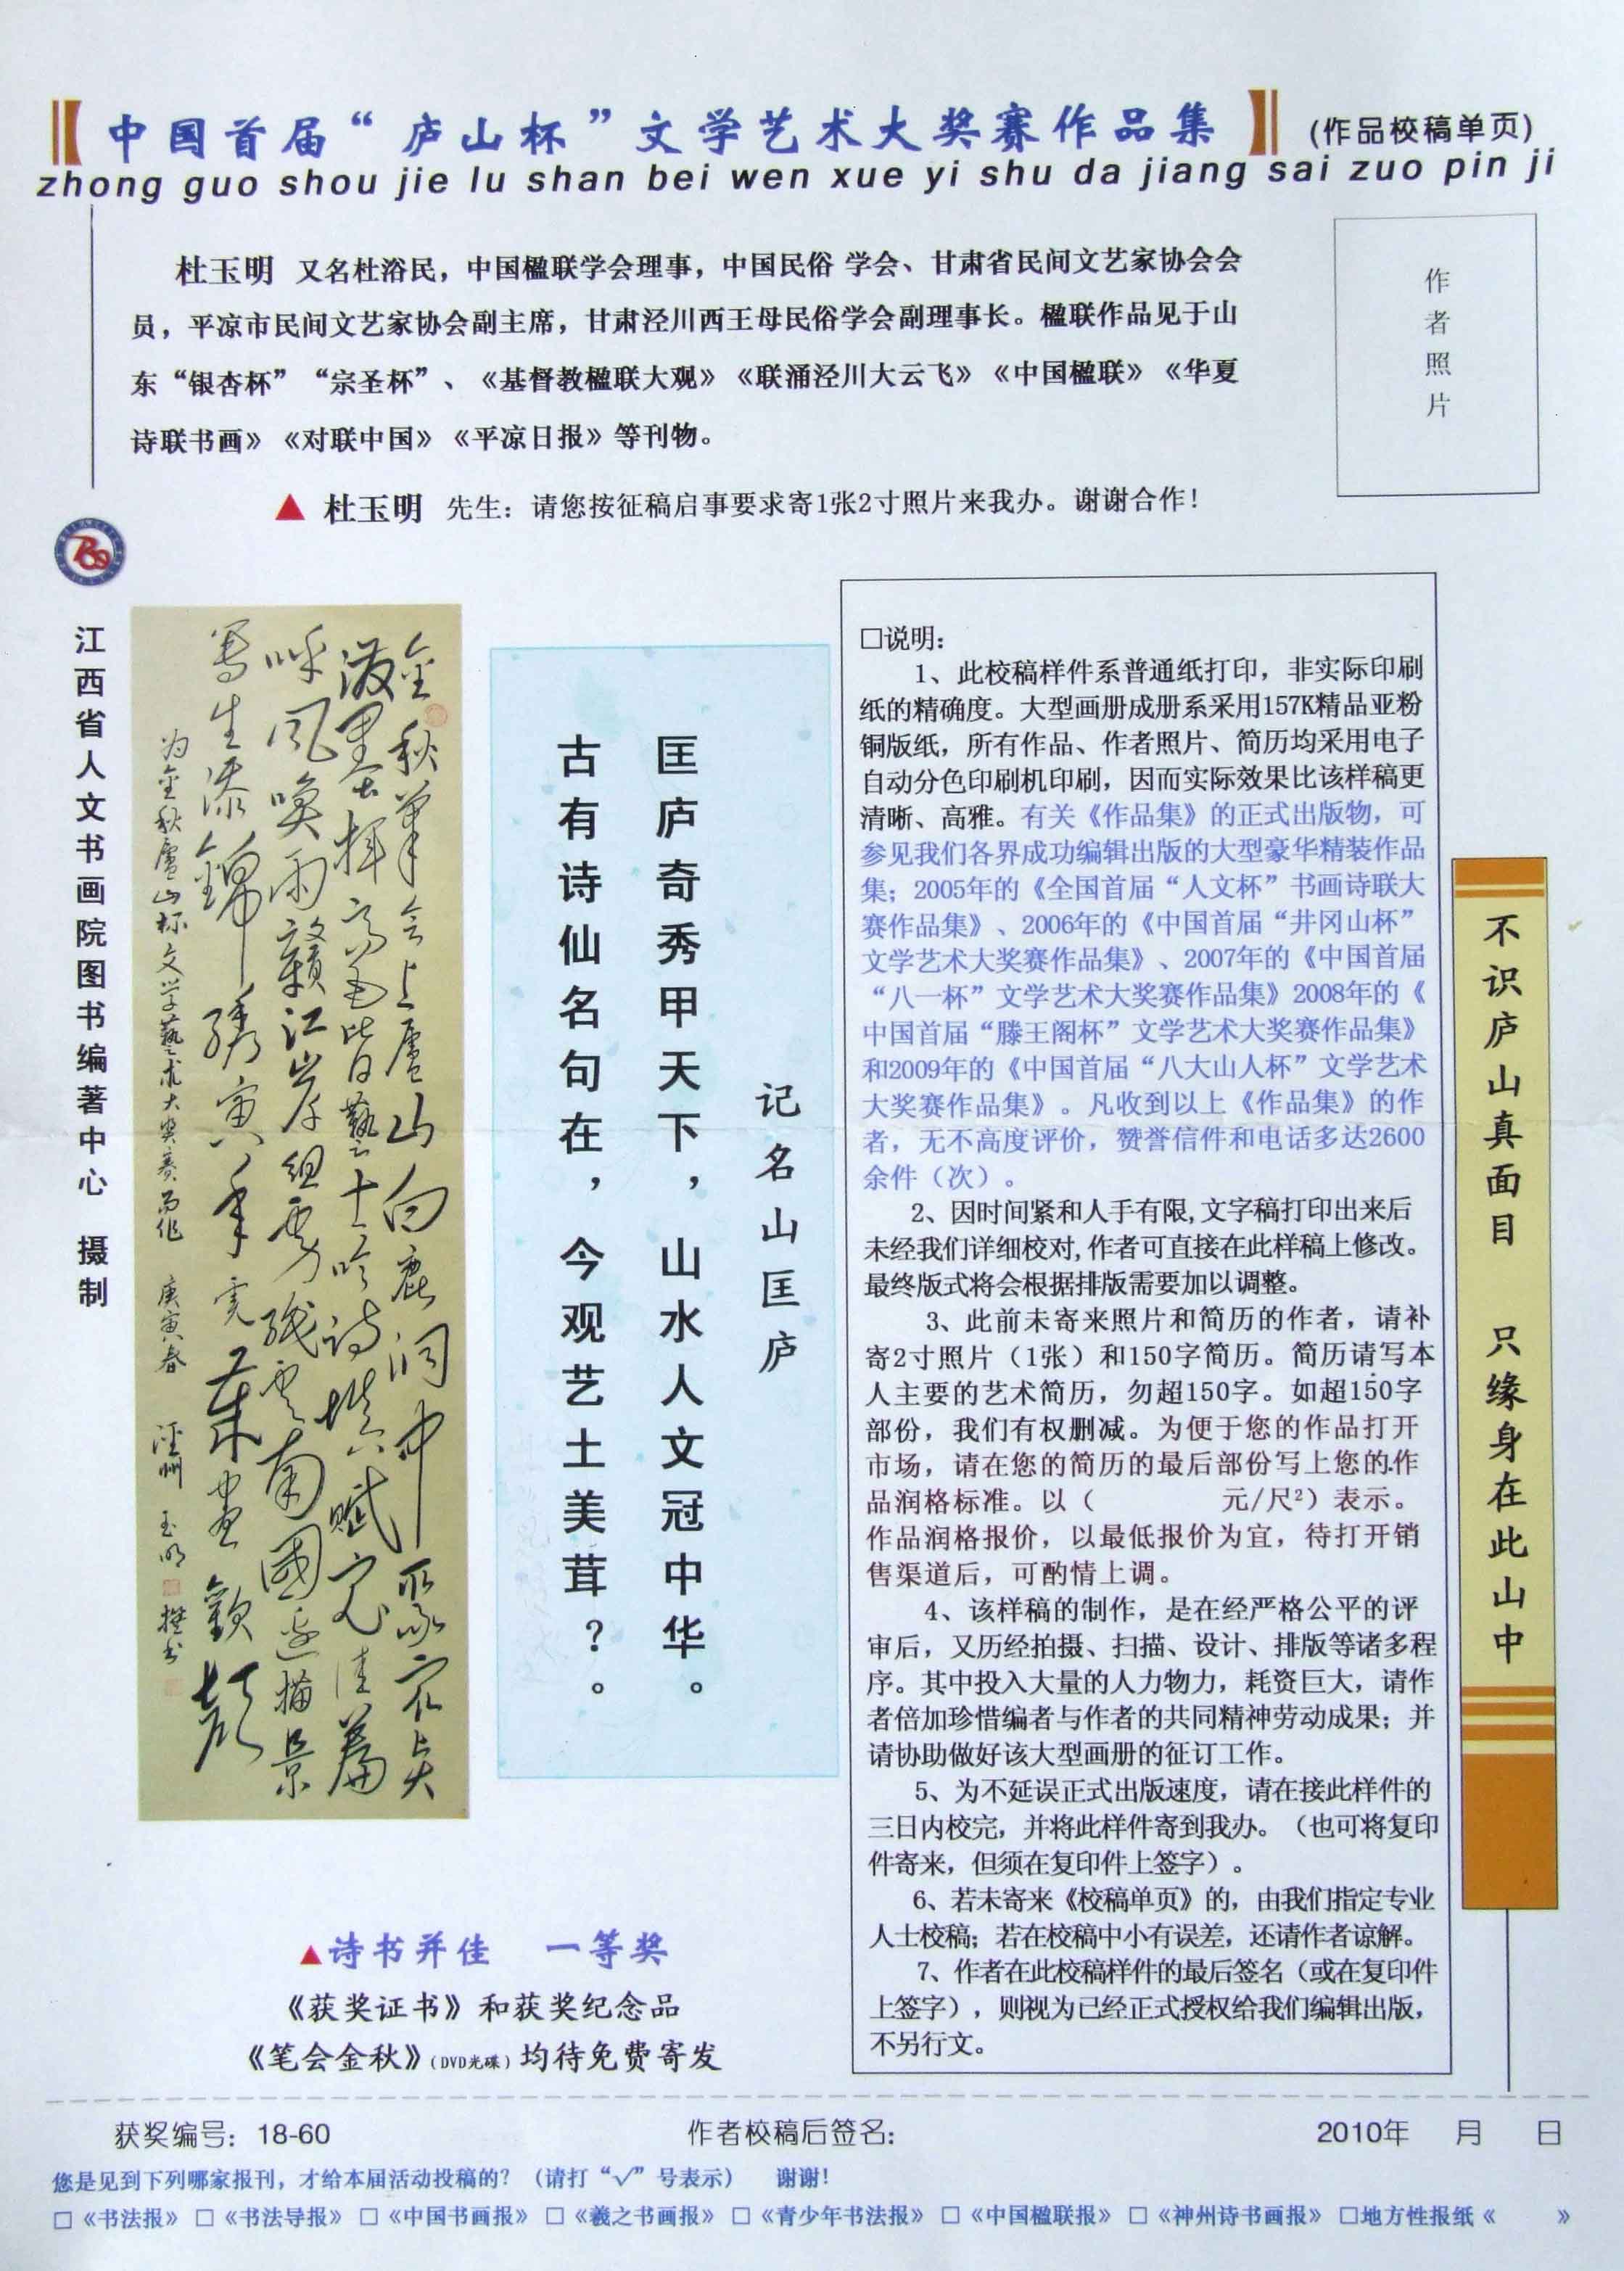 中国首届“庐山杯”文学艺术大奖赛作品集 (作品校稿单页)
zhong guo shou jie lu shan bei wen xue yi shu da jiang sai zuo pin ji
杜玉明 又名杜浴民，中国楹联学会理事，中国民俗 学会、甘肃省民间文艺家协会会
员，平凉市民间文艺家协会副主席，甘肃泾川西王母民俗学会副理事长。楹联作品见于山
东“银杏杯”“宗圣杯”、《基督教楹联大观》《联涌泾川大云飞》《中国楹联》《华夏
诗联书画》《对联中国》《平凉日报》等刊物。
作者照片
▲ 杜玉明 先生：请您按征稿启事要求寄1张2寸照片来我办。谢谢合作！
江西省人文书画院图书编著中心 摄制
金秋筆会上廬山白鹿洞中聚衣
潑墨挥高皆日藝士吟詩填六赋完佳篇
呼風喚雨贛江岸組雲南國造描景
寫生添錦繡寅年畫歡颜
为金秋廬山杯文学藝术大奖赛而作 庚寅春 泾州 玉明 撰书
记名山匡庐
匡庐奇秀甲天下，山水人文冠中华。
古有诗仙名句在，今观艺土美茸？。
□说明：
1、此校稿样件系普通纸打印，非实际印刷
纸的精确度。大型画册成册系采用157K精品亚粉
铜版纸，所有作品、作者照片、简历均采用电子
自动分色印刷机印刷，因而实际效果比该样稿更
清晰、高雅。有关《作品集》的正式出版物，可
参见我们各界成功编辑出版的大型豪华精装作品
集；2005年的《全国首届“人文杯”书画诗联大
赛作品集》、2006年的《中国首届“井冈山杯”
文学艺术大奖赛作品集》、2007年的《中国首届
“八一杯”文学艺术大奖赛作品集》2008年的《
中国首届“滕王阁杯”文学艺术大奖赛作品集》
和2009年的《中国首届“八大山人杯”文学艺术
大奖赛作品集》。凡收到以上《作品集》的作
者，无不高度评价，赞誉信件和电话多达2600
余件（次）。
2、因时间紧和人手有限,文字稿打印出来后
未经我们详细校对,作者可直接在此样稿上修改。
最终版式将会根据排版需要加以调整。
3、此前未寄来照片和简历的作者，请补
寄2寸照片（1张）和150字简历。简历请写本
人主要的艺术简历，勿超150字。如超150字
部份，我们有权删减。为便于您的作品打开
市场，请在您的简历的最后部份写上您的作
品润格标准。以（ 元/尺²）表示。
作品润格报价，以最低报价为宜，待打开销
售渠道后，可酌情上调。
4、该样稿的制作，是在经严格公平的评
审后，又历经拍摄、扫描、设计、排版等诸多程
序。其中投入大量的人力物力，耗资巨大，请作
者倍加珍惜编者与作者的共同精神劳动成果；并
请协助做好该大型画册的征订工作。
5、为不延误正式出版速度，请在接此样件的
三日内校完，并将此样件寄到我办。（也可将复印
件寄来，但须在复印件上签字）。
6、若未寄来《校稿单页》的，由我们指定专业
人士校稿；若在校稿中小有误差，还请作者谅解。
7、作者在此校稿样件的最后签名（或在复印件
上签字），则视为已经正式授权给我们编辑出版，
不另行文。
不识庐山真面目 只缘身在此山中
▲诗书并佳 一等奖
《获奖证书》和获奖纪念品
《笔会金秋》(DVD光碟)均待免费寄发
获奖编号：18-60 作者校稿后签名： 2010年 月 日
您是见到下列哪家报刊，才给本届活动投稿的？（请打“√”号表示） 谢谢！
□《书法报》□《书法导报》□《中国书画报》□《羲之书画报》□《青少年书法报》□《中国楹联报》□《神州诗书画报》□地方性报纸《 》